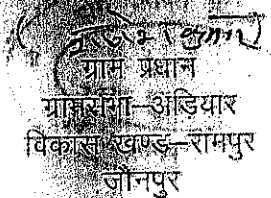 ग्राम प्रधान
ग्रामसभा-अडियार
विकास खण्ड-रामपुर
जौनपुर